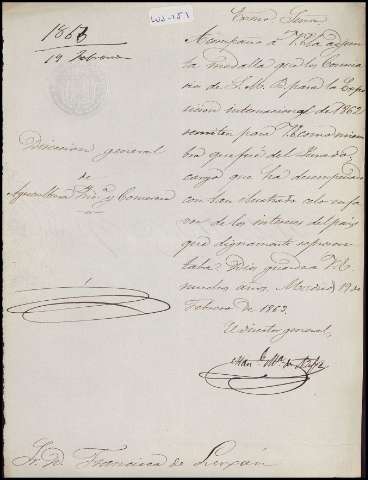 1863
19 Febrero
Direccion general
de
Agricultura Ind.ª y Comercio
Excmo Señor
Acompaño á V.E. la adjun
ta medalla que los Comisa
rios de S.M.B. para la Expo
sicion internacional de 1862
remiten para V.E. como miem
bro que fué del Jurado,
cargo que ha desempeñado
con tan ilustrado celo en fa
vor de los intereses del país
que dignamente represen
taba. Dios guarde á V.E.
muchos años. Madrid 19 de
Febrero de 1863.
El director general,
Man.l M.ª de
Sr. D. Francisco de Luxán